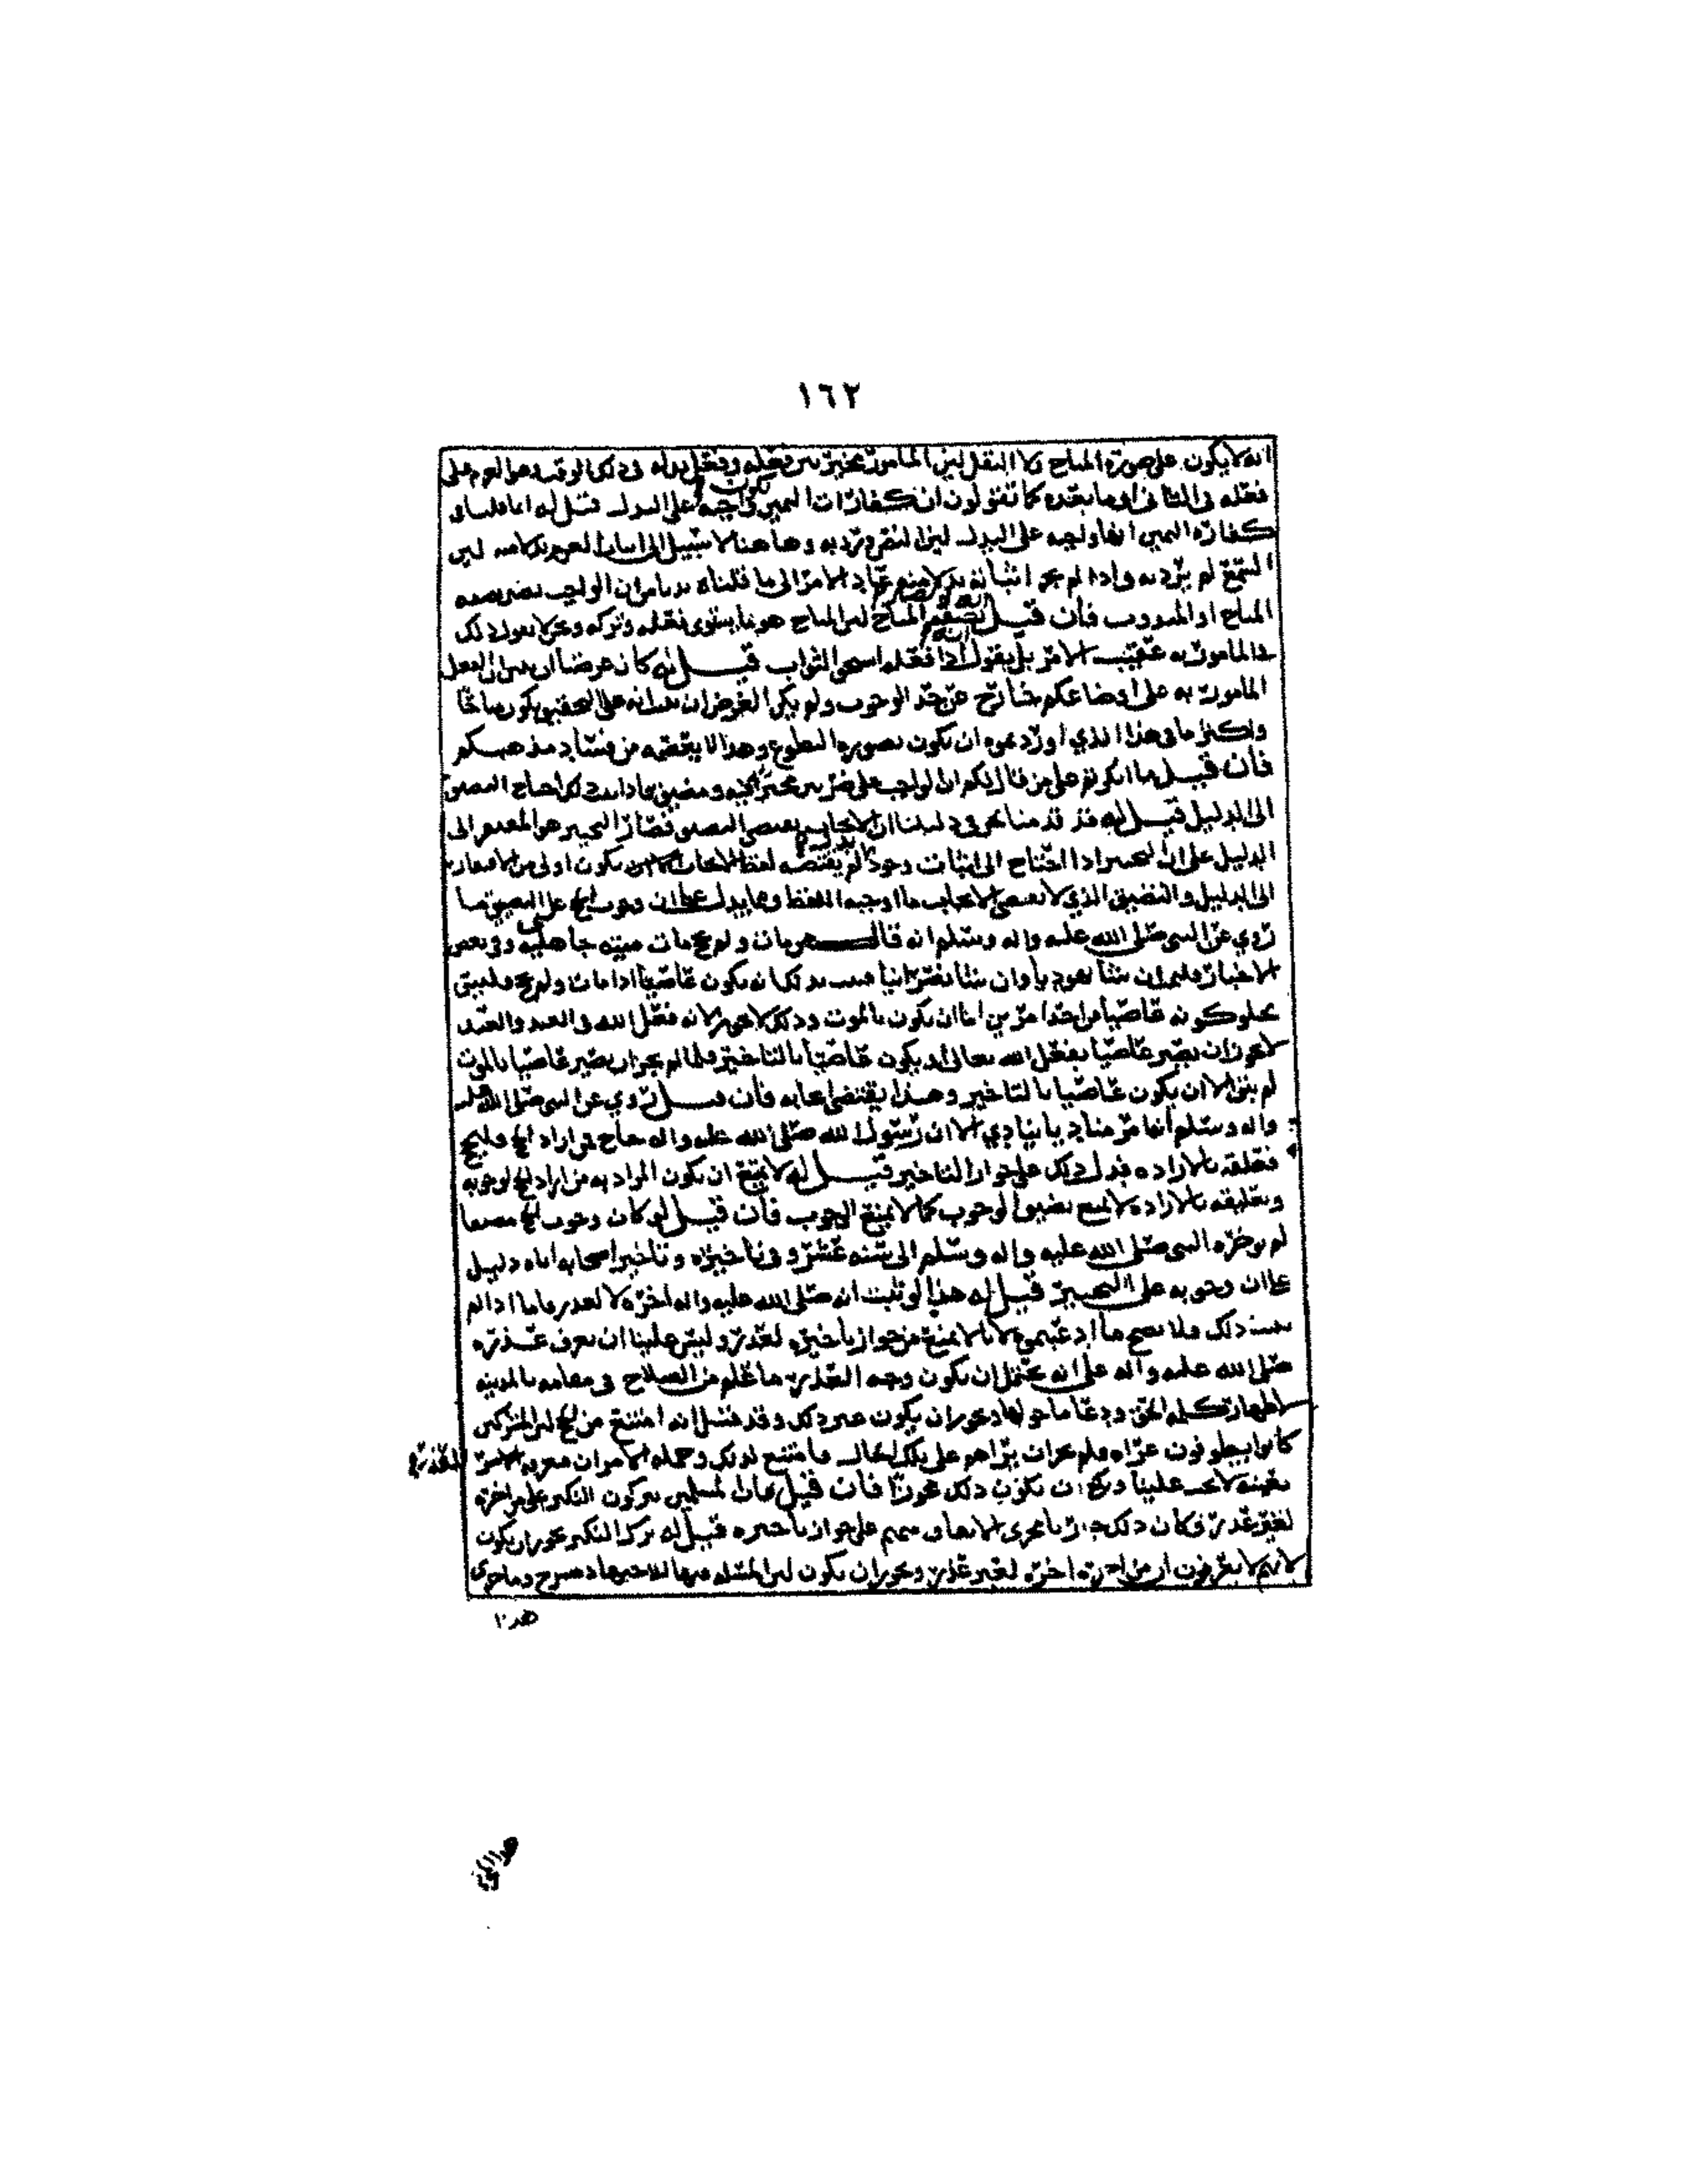 ١٦٢
انه لا يكون على صورة المباح ولا النفل لان المامور مخير بين فعله وفعل بدله فى ذلك الوقت وهو العزم على
فعله فى الثانى او ما بعده كما تقولون ان كفارات اليمين واجبة على البدل قيل له اما قلنا فى
كفارة اليمين انها واجبة على البدل لان النص ورد به وها هنا لا سبيل الى اثبات العزم بدلا منه لان
السمع لم يرد به واذا لم يجز اثباته بدلا منه عاد الامر الى ما قلناه من ان الواجب يصير بصفة
المباح او المندوب فان قيل المباح لان المباح هو ما يستوى فعله وتركه ونحن لا نقول ذلك
فى المامور به عقيب الامر بل نقول اذا فعله استحق الثواب قيل له كان غرضنا ان نبين ان الفعل
المامور به على اوضاعكم خارج عن حد الوجوب ولم يكن الغرض ان نبين انه على التحقيق يكون مباحا
واكثر ما فى هذا الذي اوردتموه ان يكون بصورة التطوع وهذا لا ينقصه من فساد مذهبكم
فان قيل ما انكرتم على من قال لكم ان الواجب على ضربين مخير فيه ومضيق فاذا ثبت ذلك احتاج المضيق
الى الدليل قيل له قد قدمنا نحن فى دليلنا ان الايجاب يقتضى التضيق فصار التخيير هو المفتقر الى
الدليل على ان التخيير اذا احتاج الى اثبات وجود لم يقتضه لفظ الايجاب يكون اولى من الافتقار
الى الدليل والتضيق الذي لا يقتضى الايجاب ما اوجبه اللفظ ومما يدل على ان وجوب الحج على التضيق ما
روي عن النبى صلى الله عليه واله وسلم انه قال من مات ولم يحج مات ميتة جاهلية وفى بعض
الاخبار فليمت ان شاء يهوديا وان شاء نصرانيا فثبت بذلك انه يكون عاصيا اذا مات ولم يحج وليس
يخلو كونه عاصيا من احد امرين اما ان يكون بالموت وذلك لا يجوز لانه فعل الله فى العبد والعبد
لا يجوز ان يصير عاصيا بفعل الله تعالى او يكون عاصيا بالتاخير فلما لم يجز ان يصير عاصيا بالموت
لم يبق الا ان يكون عاصيا بالتاخير وهذا يقتضى ايجابه فان قيل روي عن النبى صلى الله عليه
واله وسلم انه امر مناديا ينادي الا ان رسول الله صلى الله عليه واله حاج فمن اراد الحج فليحج
فعلقه بالارادة فدل ذلك على جواز التاخير قيل له لا يمتنع ان يكون المراد به من اراد الحج لوجوبه
وتعليقه بالارادة لا يمنع تضيق الوجوب كما لا يمنع الوجوب فان قيل لو كان وجوب الحج مضيقا
لم يوخره النبى صلى الله عليه واله وسلم الى سنة عشر وفى تاخيره وتاخير اصحابه اياه دليل
على ان وجوبه على التخيير قيل له هذا لو ثبت انه صلى الله عليه واله اخره لا لعذر فاما اذا لم
يثبت ذلك فلا يصح ما ادعيتموه لانا لا نمنع من جواز تاخيره لعذر وليس علينا ان نعرف عذره
صلى الله عليه واله على انه يحتمل ان يكون وجه العذر ما علم من الصلاح فى مقامه بالمدينة
لاظهار كلمة الحق ودعا ما حولها ويجوز ان يكون غير ذلك وقد قيل انه امتنع من الحج لان المشركين
كانوا يطوفون عراة فلم يجز ان يراهم على تلك الحال فامتنع لذلك وجملة الامر ان معرفة العذر
بعينه لا يجب علينا ان يكون ذلك مجوزا فان قيل فان المسلمين يتركون النكير على من اخره
لغير عذر فكان ذلك جاريا مجرى الاتفاق منهم على جواز تاخيره قيل له ترك النكير يجوز ان يكون
لانهم لا يعرفون ان من اخره اخره لغير عذر ويجوز ان يكون لان المسئلة فيها للاجتهاد مسرح وما جرى
هذا